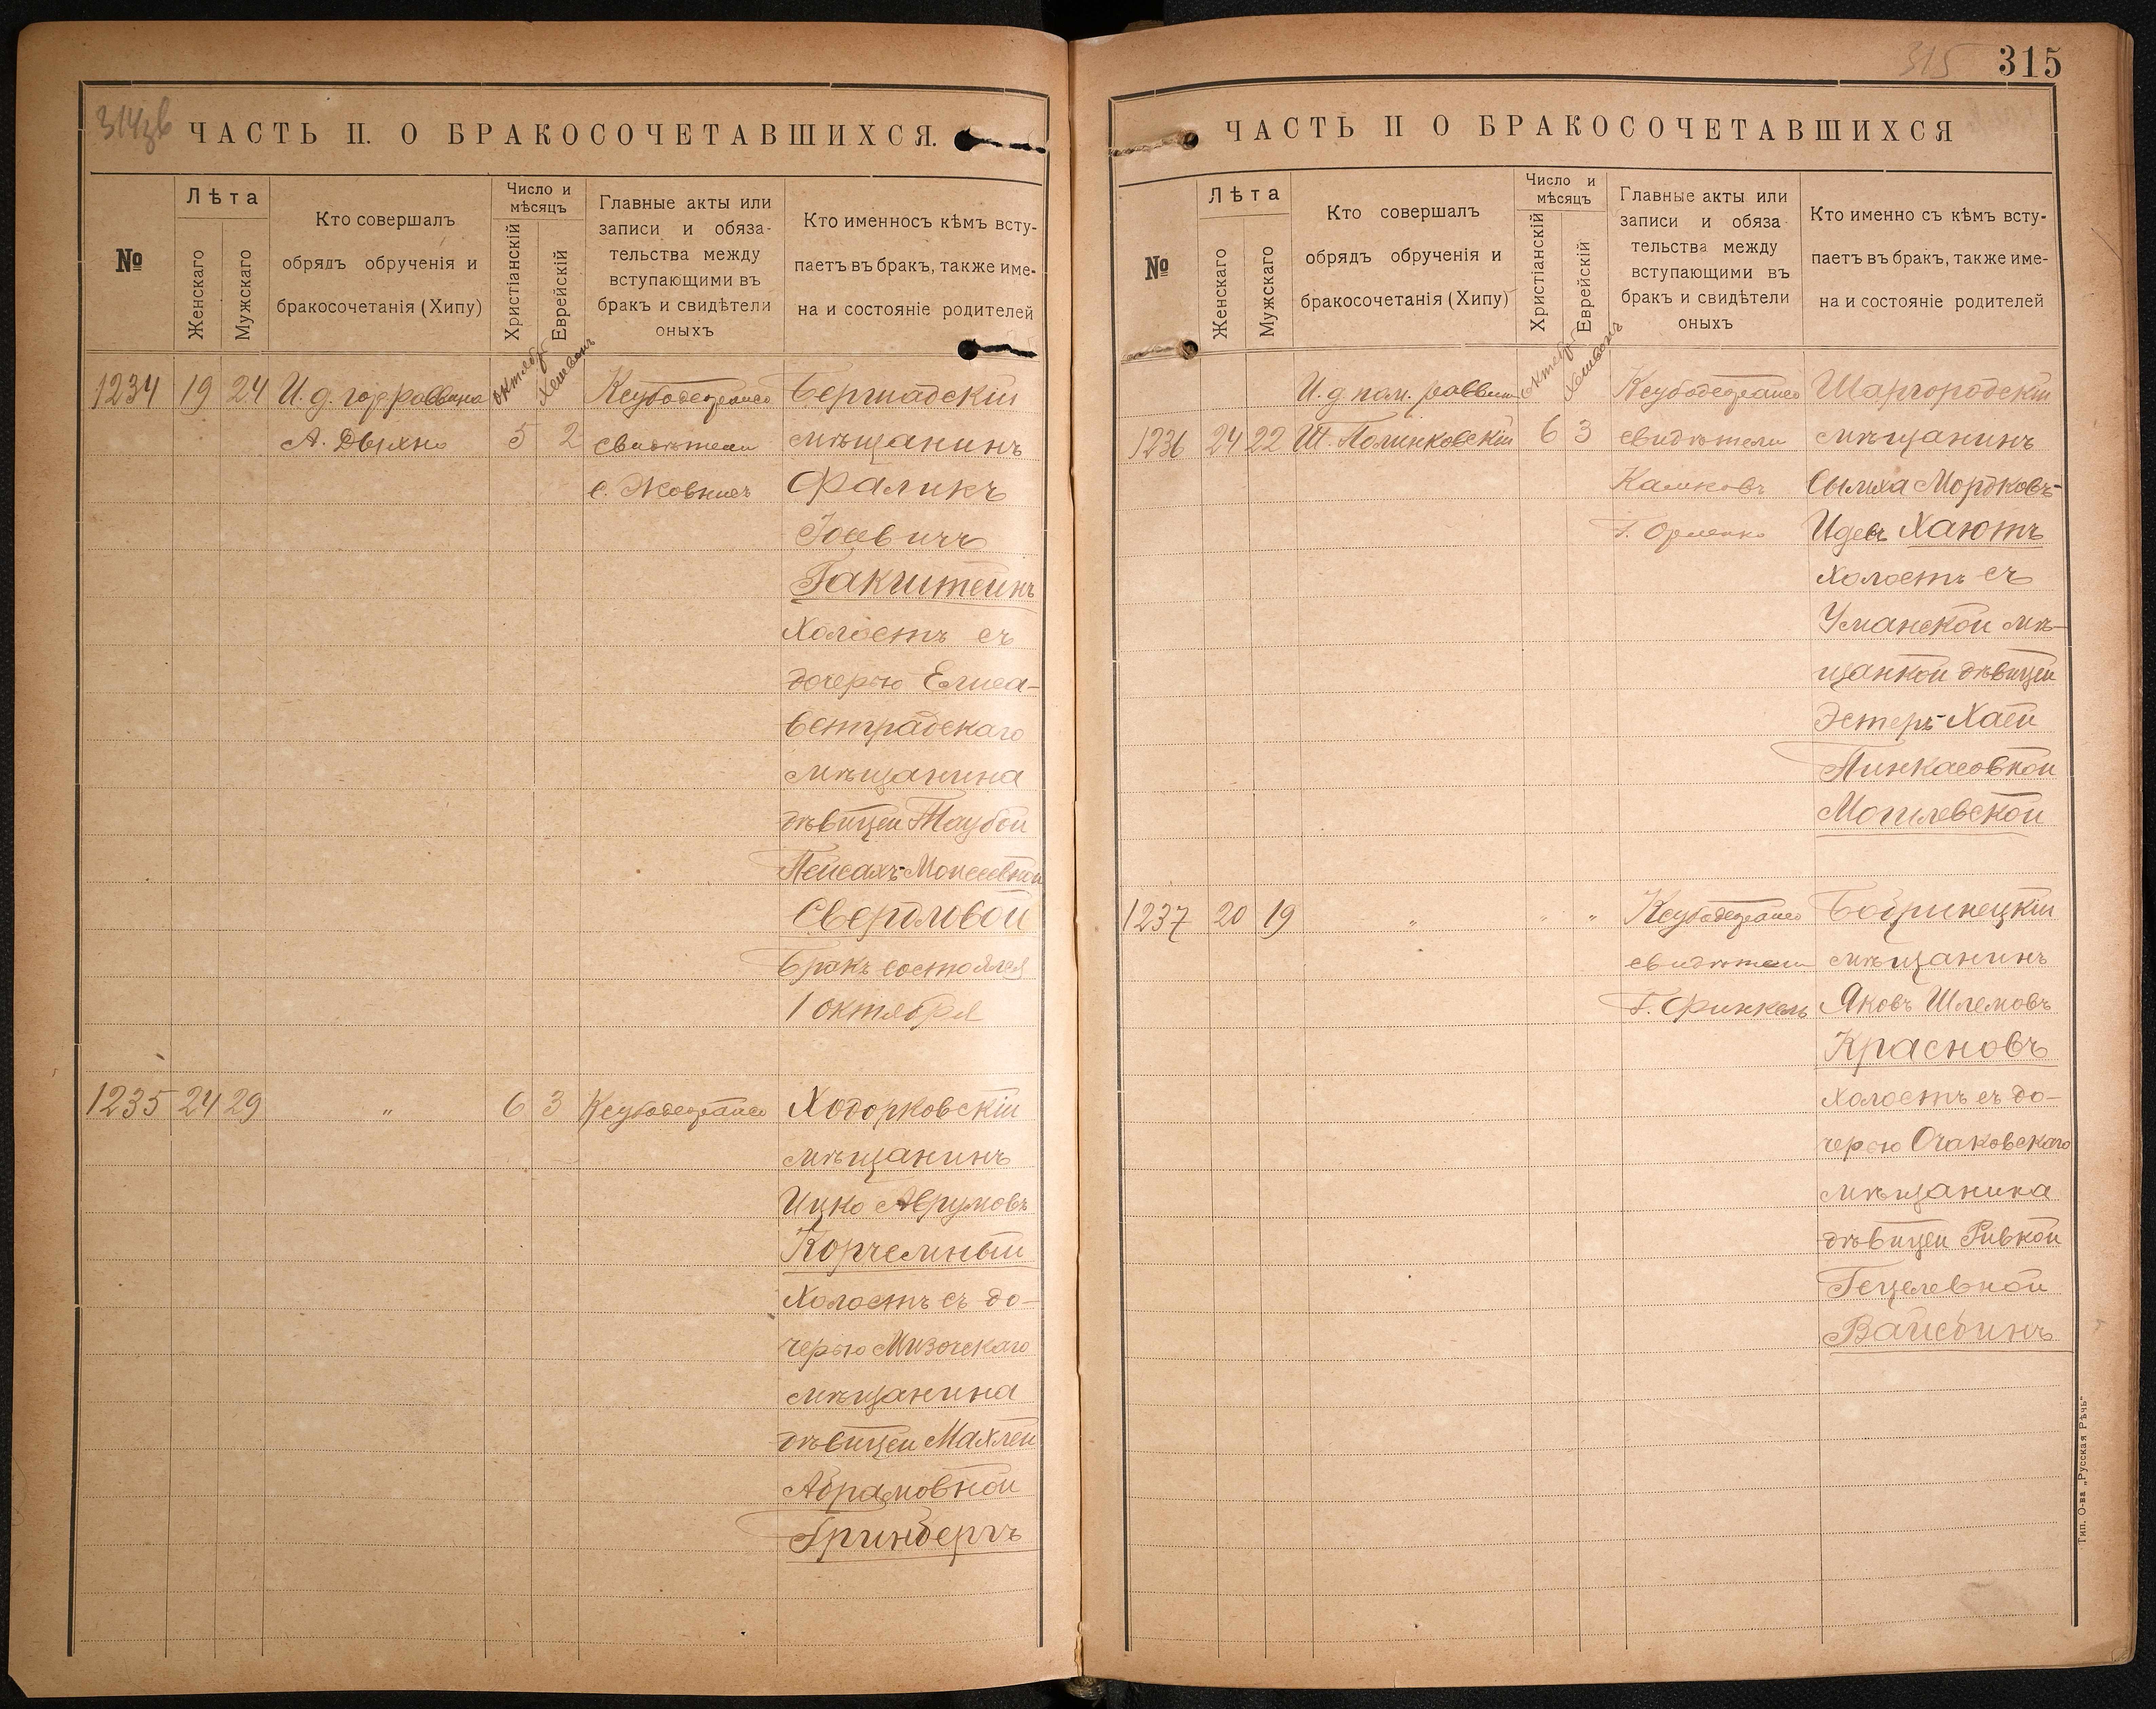 314зв
ЧАСТЬ II. О БРАКОСОЧЕТАВШИХСЯ.
№
Лѣта
Женскаго
Мужскаго
Кто совершалъ
обрядъ обрученія и
бракосочетанія (Хипу)
Число и
мѣсяцъ
Христіанскій
Еврейскій
Главные акты или
записи и обяза-
тельства между
вступающими въ
бракъ и свидѣтели
оныхъ
Кто именносъ кѣмъ всту-
паетъ въ бракъ, также име-
на и состояніе родителей
октябрь
Хешвонъ
1234 19 24 И. д. гор раввина Бершадскій
А. Дыхно 5 2 свидѣтели мѣщанинъ
Фаликъ
Іосевичъ
Гакштейнъ
Холостъ съ
дочерью Елиса-
ветградскаго
мѣщанина
дѣвицей Таубой
Пейсахъ-Моисеевной
Свердловой
Бракъ состоялся
1 октября
1235 24 29 " 6 3 Ходорковскій
мѣщанинъ
Ицко Аврумовъ
Корчемный
Холостъ съ до-
черью Мизочскаго
мѣщанина
дѣвицей Махлей
Абрамовной
Гринбергъ
315
315
ЧАСТЬ II О БРАКОСОЧЕТАВШИХСЯ
№
Лѣта
Женскаго
Мужскаго
Кто совершалъ
обрядъ обрученія и
бракосочетанія (Хипу)
Число и
мѣсяцъ
Христіанскій
Еврейскій
Главные акты или
записи и обяза-
тельства между
вступающими въ
бракъ и свидѣтели
оныхъ
Кто именно съ кѣмъ всту-
паетъ въ бракъ, также име-
на и состояніе родителей
октябрь
Хешвонъ
И. д. пом. раввина Шаргородскій
1236 24 22 Ш. Полинковскій 6 3 свидѣтели мѣщанинъ
Сылиха Мордковъ-
Идевъ Хаютъ
Холостъ съ
Уманской мѣ-
щанкой дѣвицей
Эстеръ-Хаей
Пинкасовной
Могилевской
1237 20 19 " " " Бобринецкій
свидѣтели мѣщанинъ
Г. Финкель Яковъ Шлемовъ
Красновъ
Холостъ съ до-
черью Очаковскаго
мѣщанина
дѣвицей Ривкой
Гецелевной
Вайсбинъ
Тип. О-ва „Русская Рѣчь"